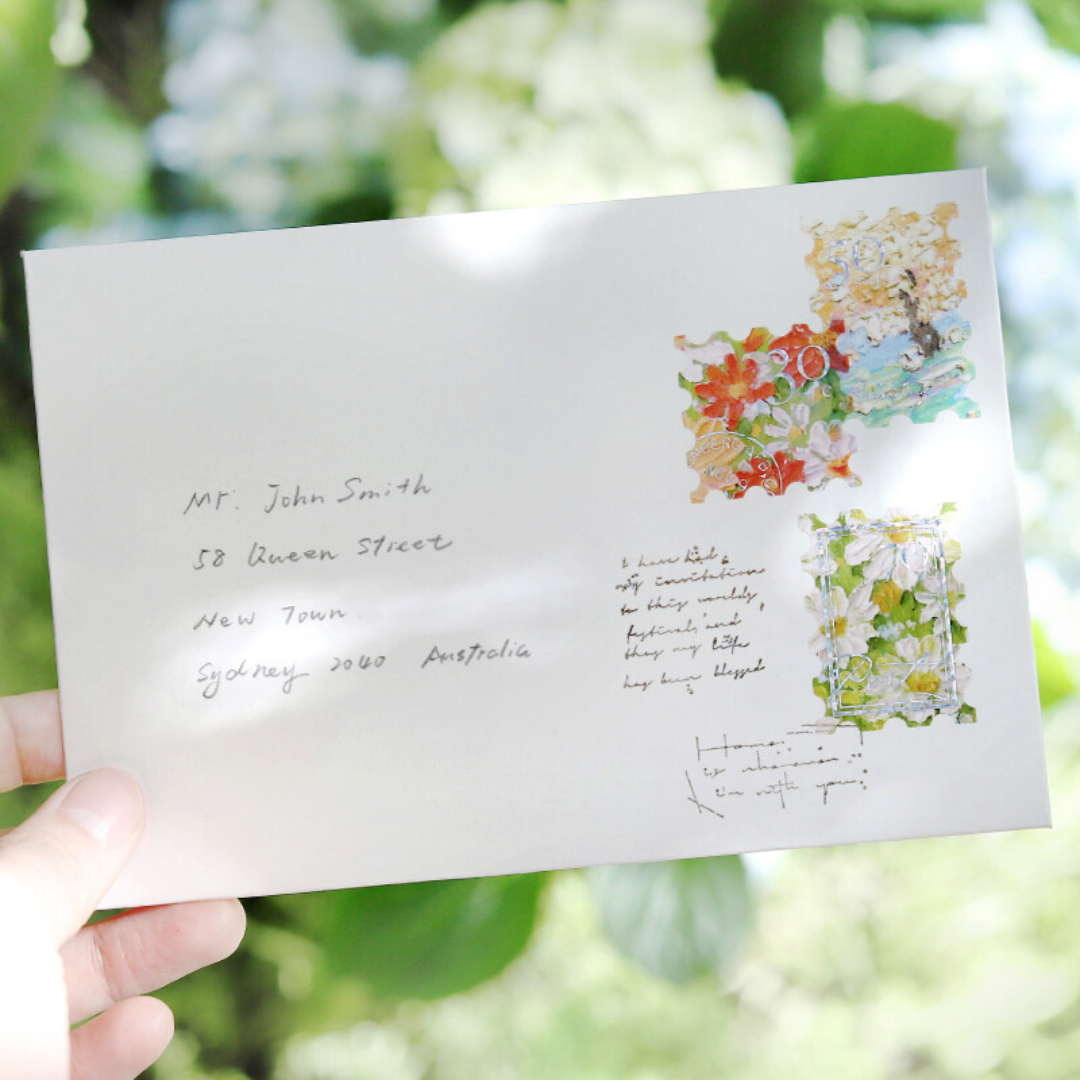 Mr. John Smith
58 Queen Street
New Town
Sydney 2040 Australia
50
30
I have had
my invitation
to this world's
festival, and
thus my life
has been blessed
Home
is wherever
i'm with you